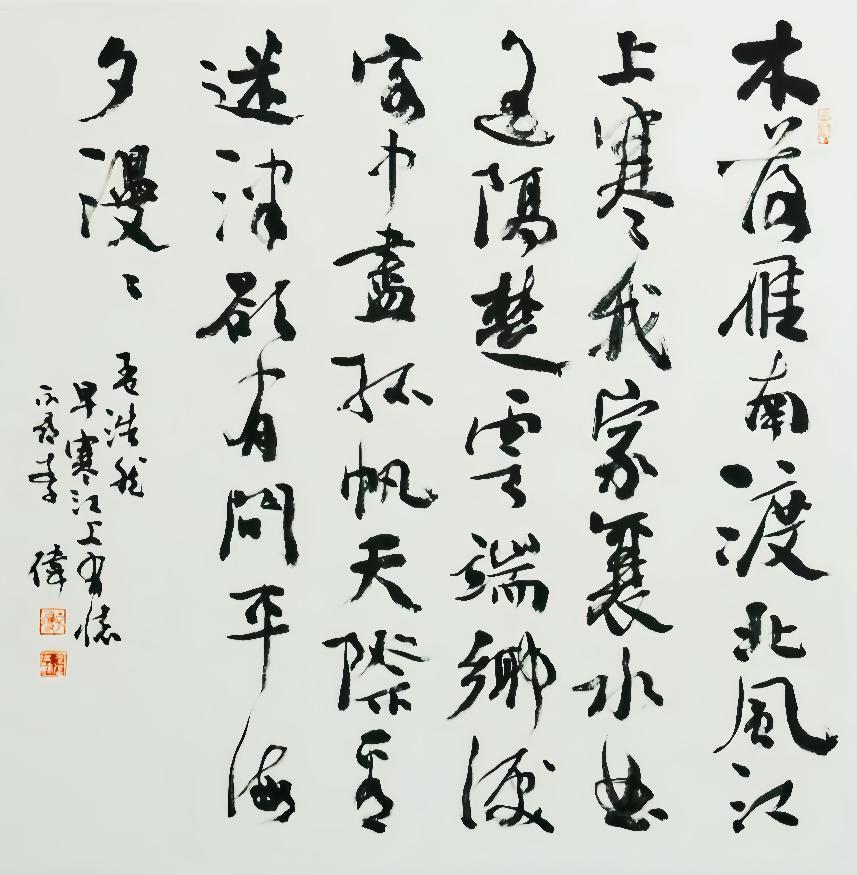 木落雁南渡北風江
上寒我家襄水曲
遥隔楚雲端鄉淚
客中盡孤帆天際看
迷津欲有問平海
夕漫々
孟浩然
早寒江上有懷
李偉